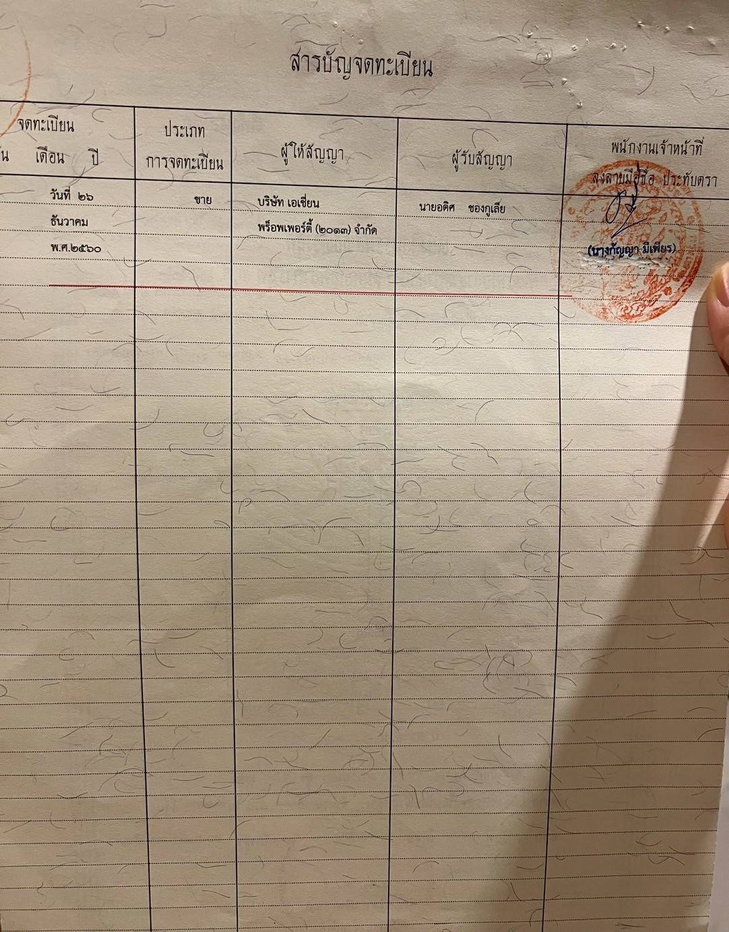 สารบัญจดทะเบียน
จดทะเบียน
เดือน ปี
ประเภท
การจดทะเบียน
ผู้ให้สัญญา
ผู้รับสัญญา
พนักงานเจ้าหน้าที่
ลงลายมือชื่อ ประทับตรา
วันที่ ๒๖
ธันวาคม
พ.ศ.๒๕๖๐
ขาย
บริษัท เอเชี่ยน
พร็อพเพอร์ตี้ (๒๐๑๓) จำกัด
นายอดิศ ชองกูเลีย
(นางกัญญา มีเพียร)